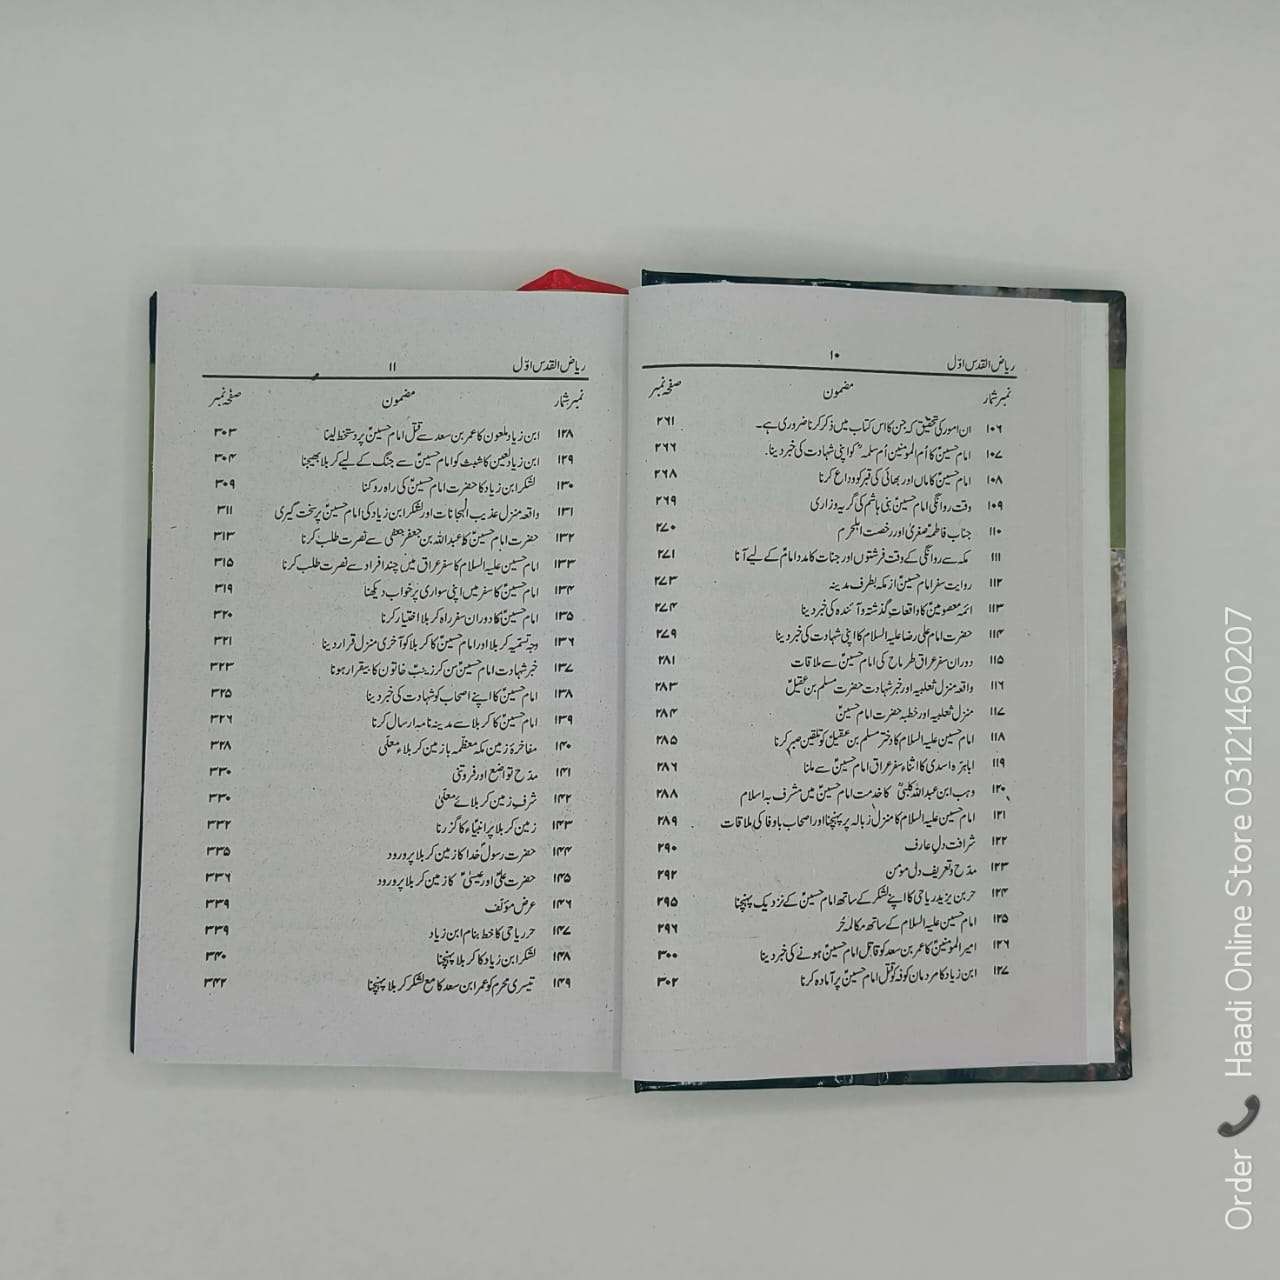 ریاض القدس اوّل ۱۰
نمبر شمار مضمون صفحہ نمبر
۱۰۶ ان امور کی تحقیق کہ جن کا اس کتاب میں ذکر کرنا ضروری ہے۔ ۲۶۱
۱۰۷ امام حسینؑ کا اُم المؤمنین اُم سلمہؓ کو اپنی شہادت کی خبر دینا۔ ۲۶۶
۱۰۸ امام حسینؑ کا ماں اور بھائی کی قبر کو وداع کرنا ۲۶۸
۱۰۹ وقت روانگی امام حسینؑ بنی ہاشم کی گریہ وزاری ۲۶۹
۱۱۰ جناب فاطمہ صغریٰؑ اور رخصت اہلحرم ۲۷۰
۱۱۱ مکہ سے روانگی کے وقت فرشتوں اور جنات کا مدد امامؑ کے لیے آنا ۲۷۱
۱۱۲ روایت سفر امام حسینؑ از مکہ بطرف مدینہ ۲۷۳
۱۱۳ ائمہ معصومینؑ کا واقعاتِ گذشتہ و آئندہ کی خبر دینا ۲۷۴
۱۱۴ حضرت امام علی رضا علیہ السلام کا اپنی شہادت کی خبر دینا ۲۷۹
۱۱۵ دوران سفر عراق طرماح کی امام حسینؑ سے ملاقات ۲۸۱
۱۱۶ واقعہ منزل ثعلبیہ اور خبر شہادت حضرت مسلم بن عقیلؑ ۲۸۳
۱۱۷ منزل ثعلبیہ اور خطبہ حضرت امام حسینؑ ۲۸۴
۱۱۸ امام حسین علیہ السلام کا دختر مسلم بن عقیلؑ کو تلقین صبر کرنا ۲۸۵
۱۱۹ اباہرہ اسدی کا اثناء سفر عراق امام حسینؑ سے ملنا ۲۸۶
۱۲۰ وہب ابن عبداللہ کلبیؑ کا خدمت امام حسینؑ میں مشرف بہ اسلام ۲۸۸
۱۲۱ امام حسین علیہ السلام کا منزل زبالہ پر پہنچنا اور اصحاب باوفا کی ملاقات ۲۸۹
۱۲۲ شرافت دلِ عارف ۲۹۰
۱۲۳ مدّح و تعریف دل مومن ۲۹۲
۱۲۴ حر بن یزید ریاحی کا اپنے لشکر کے ساتھ امام حسینؑ کے نزدیک پہنچنا ۲۹۵
۱۲۵ امام حسین علیہ السلام کے ساتھ مکالمہ حُر ۲۹۶
۱۲۶ امیر المؤمنینؑ کا عمر بن سعد کو قاتل امام حسینؑ ہونے کی خبر دینا ۳۰۰
۱۲۷ ابن زیاد کا مردمان کوفہ کو قتل امام حسینؑ پر آمادہ کرنا ۳۰۲
ریاض القدس اوّل ۱۱
نمبر شمار مضمون صفحہ نمبر
۱۲۸ ابن زیاد ملعون کا عمر بن سعد سے قتل امام حسینؑ پر دستخط لینا ۳۰۳
۱۲۹ ابن زیاد لعین کا شبث کو امام حسینؑ سے جنگ کے لیے کربلا بھیجنا ۳۰۴
۱۳۰ لشکر ابن زیاد کا حضرت امام حسینؑ کی راہ روکنا ۳۰۹
۱۳۱ واقعہ منزل عذیب الہجانات اور لشکر ابن زیاد کی امام حسینؑ پر سخت گیری ۳۱۱
۱۳۲ حضرت امام حسینؑ کا عبداللہ بن جعفر جعفی سے نصرت طلب کرنا ۳۱۳
۱۳۳ امام حسین علیہ السلام کا سفر عراق میں چند افراد سے نصرت طلب کرنا ۳۱۵
۱۳۴ امام حسینؑ کا سفر میں اپنی سواری پر خواب دیکھنا ۳۱۹
۱۳۵ امام حسینؑ کا دوران سفر راہ کربلا اختیار کرنا ۳۲۰
۱۳۶ وجہ تسمیہ کربلا اور امام حسینؑ کا کربلا کو آخری منزل قرار دینا ۳۲۱
۱۳۷ خبر شہادت امام حسینؑ سن کر زینبؑ خاتون کا بیقرار ہونا ۳۲۳
۱۳۸ امام حسینؑ کا اپنے اصحاب کو شہادت کی خبر دینا ۳۲۵
۱۳۹ امام حسینؑ کا کربلا سے مدینہ نامہ ارسال کرنا ۳۲۶
۱۴۰ مفاخرۂ زمین مکہ معظّمہ با زمین کربلاء معلّٰی ۳۲۸
۱۴۱ مدّح تواضع اور فروتنی ۳۳۰
۱۴۲ شرف زمین کربلائے معلّٰی ۳۳۰
۱۴۳ زمین کربلا پر انبیاء کا گزرنا ۳۳۲
۱۴۴ حضرت رسولؐ خدا کا زمین کربلا پر ورود ۳۳۵
۱۴۵ حضرت علیؑ اور عیسیٰؑ کا زمین کربلا پر ورود ۳۳۶
۱۴۶ عرض مؤلف ۳۳۹
۱۴۷ حر ریاحی کا خط بنام ابن زیاد ۳۳۹
۱۴۸ لشکر ابن زیاد کا کربلا پہنچنا ۳۴۰
۱۴۹ تیسری محرم کو عمر ابن سعد کا مع لشکر کربلا پہنچنا ۳۴۲
Order 📞 Haadi Online Store 03121460207